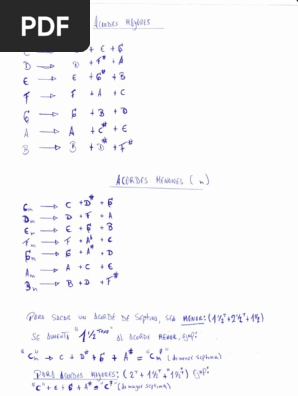 PDF
Acordes Mayores
C → C + E + G
D → D + F# + A
E → E + G# + B
F → F + A + C
G → G + B + D
A → A + C# + E
B → B + D# + F#
Acordes Menores (m)
Cm → C + D# + G
Dm → D + F + A
Em → E + G + B
Fm → F + A♭ + C
Gm → G + A# + D
Am → A + C + E
Bm → B + D + F#
Para sacar un acorde de septima, sea menor: (1½T + 2½T + 1½)
se aumenta "1½ Tono" al acorde menor, Ejm:
"Cm" → C + D# + G + A# = "Cm7" (do menor septima)
Para acordes mayores: (2T + 1½T + 1½T) Ejm:
"C" = C + E + G + A# = "C7" (do mayor septima)